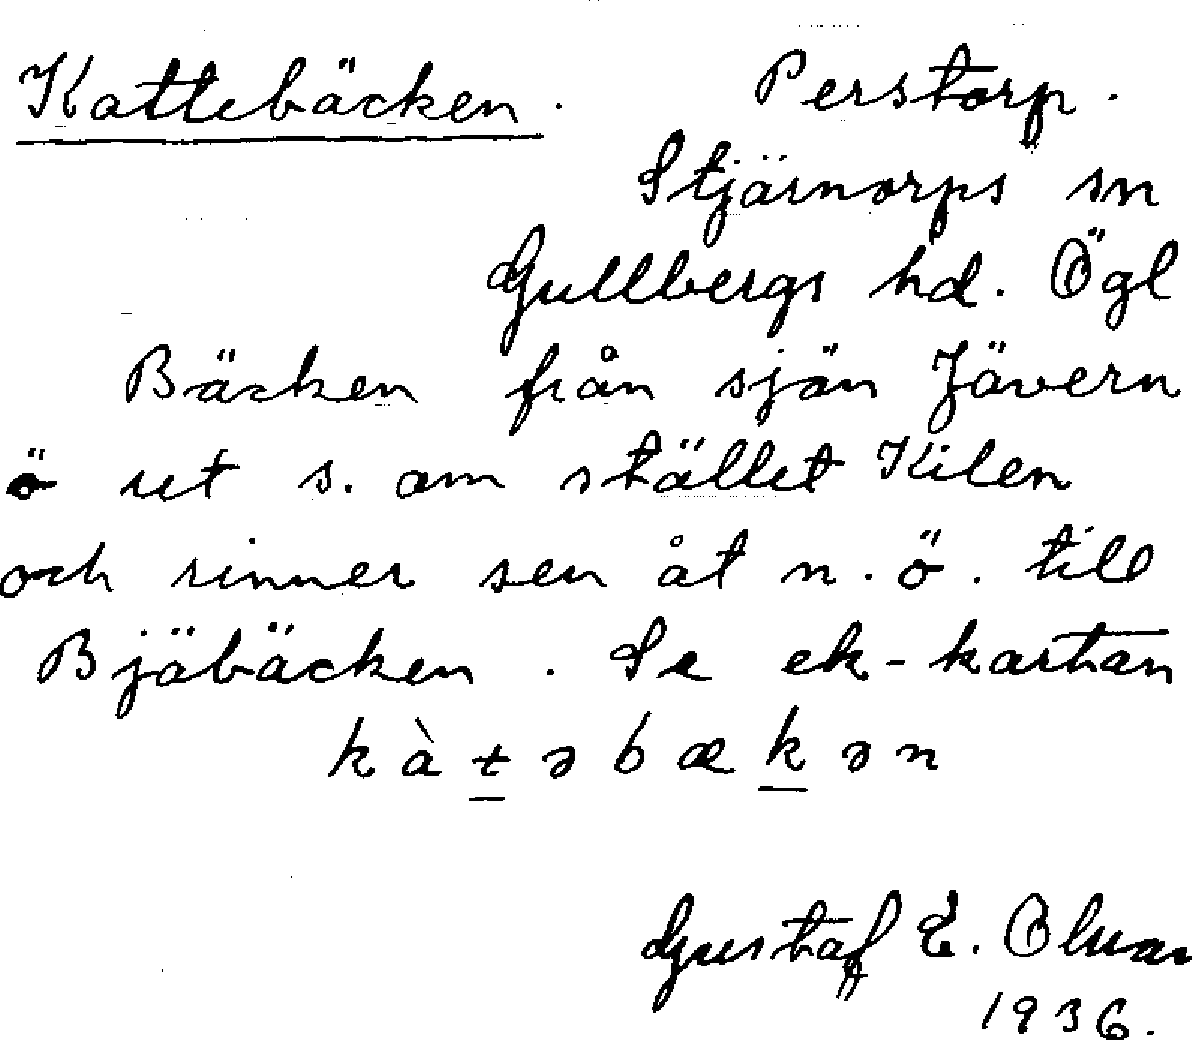 Kattebäcken. Perstorp.
Stjärnorps sn
Gullbergs hd. Ögl
Bäcken från sjön Jävern
ö ut s. om stället Kilen
och rinner sen åt n.ö. till
Bjäbäcken. Se ek-kartan
kàtəbækən
Gustaf E.
1936.